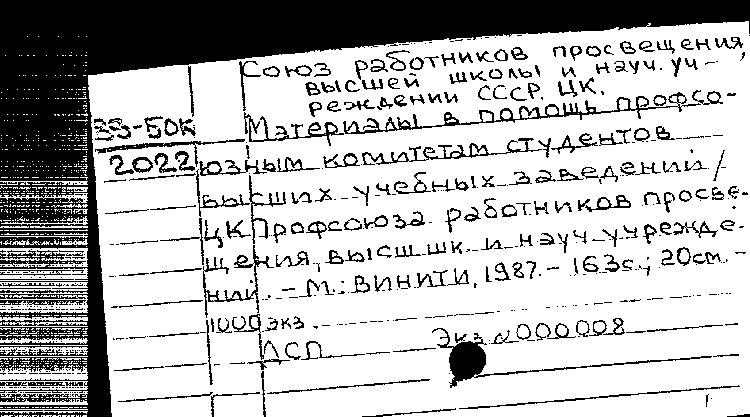 Союз работников просвещения,
высшей школы и науч. уч-
реждении СССР. ЦК.
33-БОК Материалы в помощь профсо-
2022 юзным комитетам студентов
высших учебных заведений /
ЦК Профсоюза работников просве-
щения, высш. шк. и науч. учрежде-
ний. – М.: ВИНИТИ, 1987. – 163с.; 20см. –
1000 экз.
ДСП Экз. N 000008